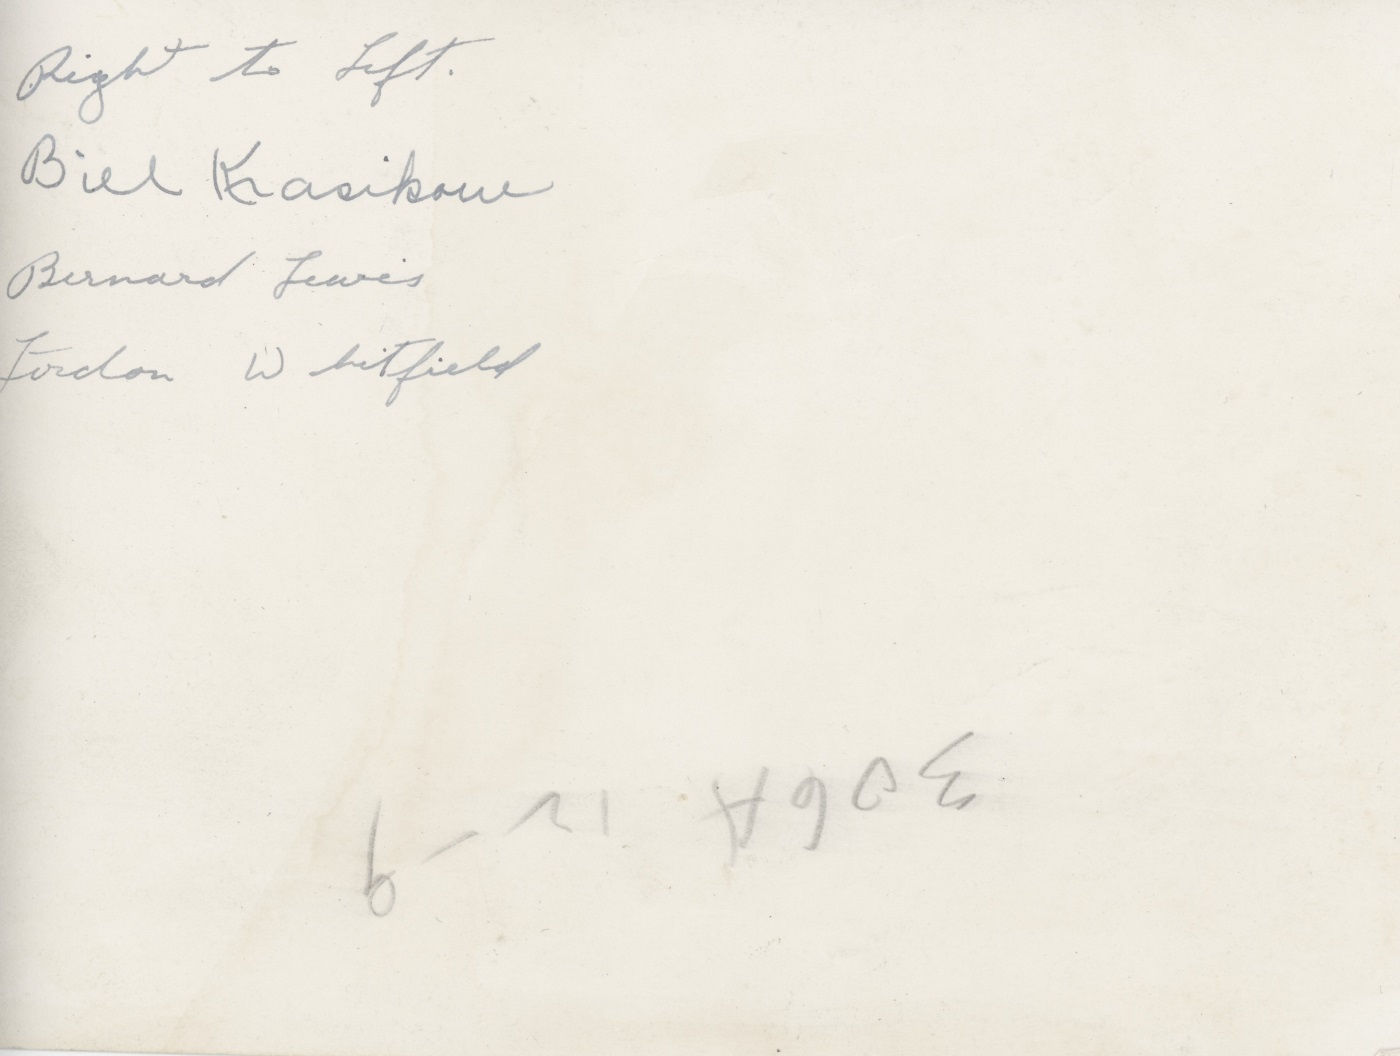 Right to Left.
Bill Krasikow
Bernard Lewis
Gordon Whitfield
306A 12-9